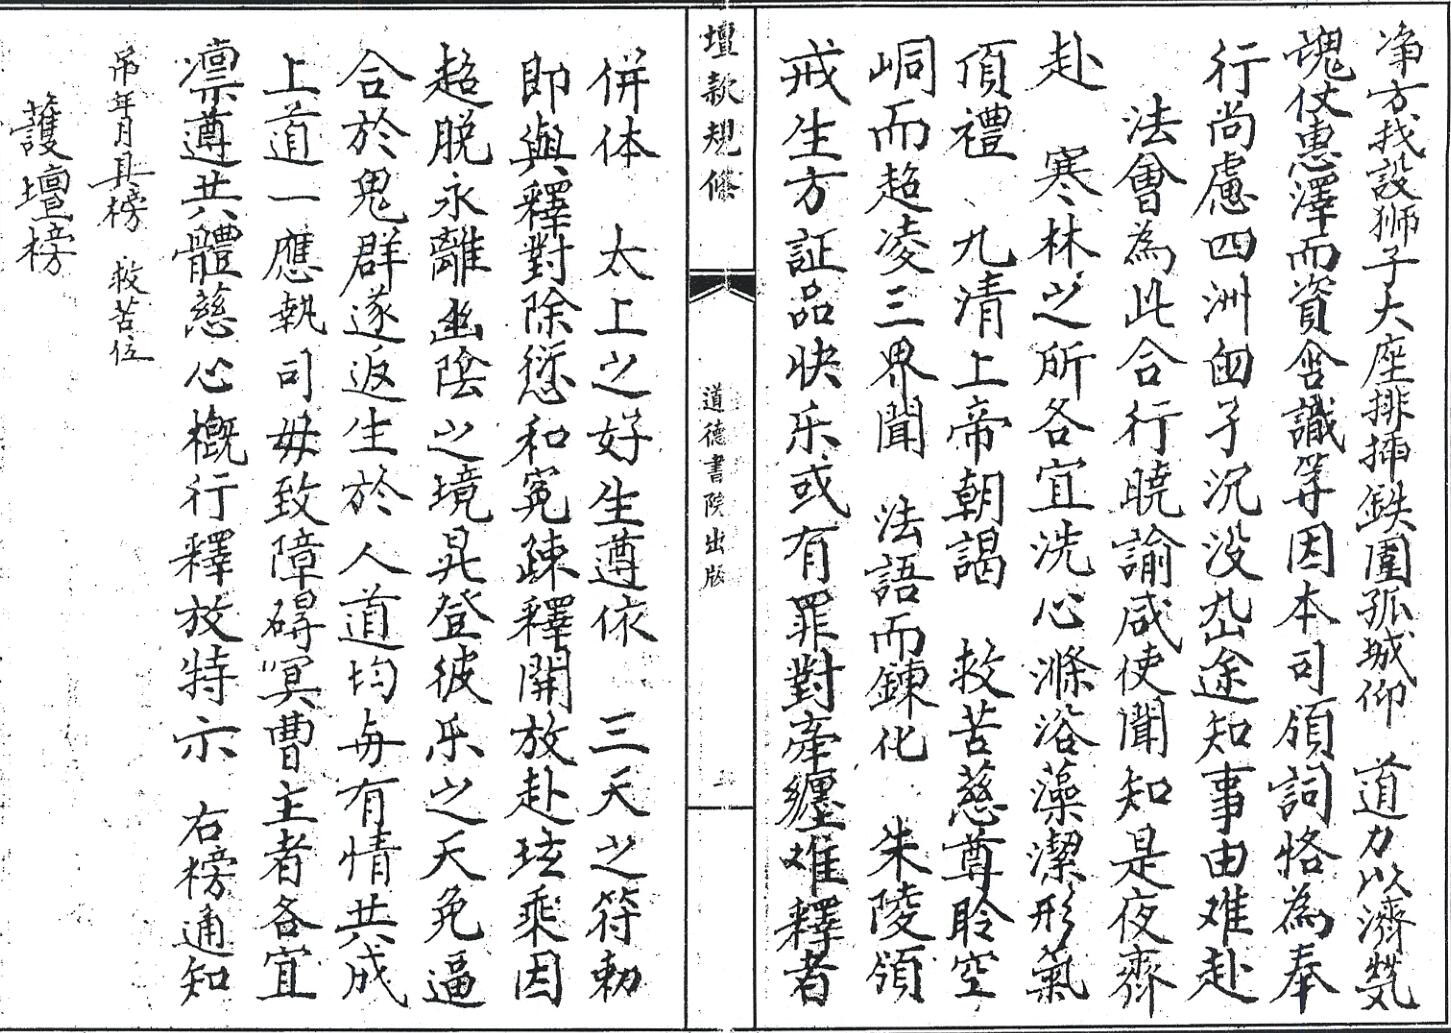 净方找設狮子大座排揷鉄圍孤城仰　道力以濟煢
魂仗惠澤而資含識等因本司領詞恪為奉
行尚慮四洲囬子沉没岔途知事由难赴
法會為此合行曉諭咸使聞知是夜齊
赴　寒林之所各宜洗心滌浴藻潔形氣
頂禮　九清上帝朝謁　救苦慈尊聆空
峒而超凌三界聞　法語而鍊化　朱陵領
戒生方証品快乐或有罪對牽纏难釋者
壇款規條
道德書院出版
併体　太上之好生尊依　三天之符勅
即與釋對除愆和寃疎釋開放赴玹乘因
超脱永離幽陰之境晃登彼乐之天免逼
合於鬼群遂返生於　人道均毎有情共成
上道一應執司毋致障碍冥曹主者各宜
凛遵共體慈心概行釋放特示　右榜通知
吊年月具榜　救苦位
護壇榜